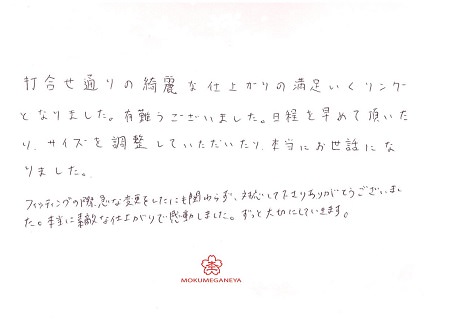 打合せ通りの綺麗な仕上がりの満足いくリング
となりました。有難うございました。日程を早めて頂いた
り、サイズを調整していただいたり、本当にお世話にな
りました。
フィッティングの際、急な変更をしたにも関わらず、対応して下さりありがとうございまし
た。本当に素敵な仕上がりで感動しました。ずっと大切にしていきます。
MOKUMEGANEYA